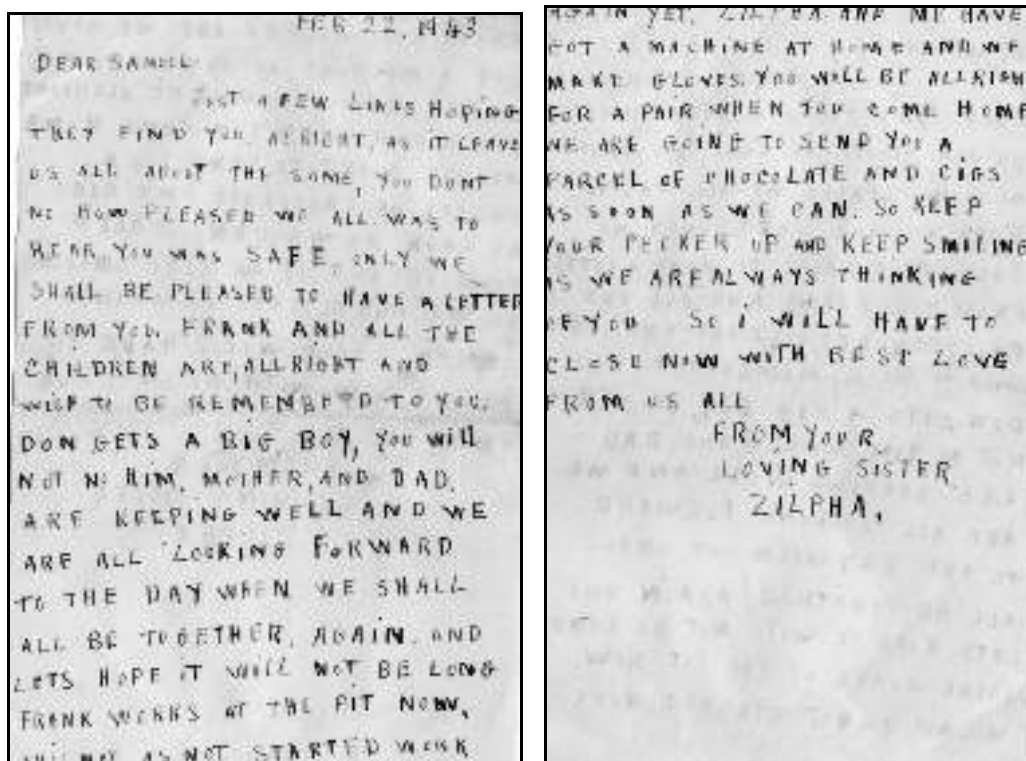 FEB 22, 1943
DEAR SAMUEL
JUST A FEW LINES HOPING
THEY FIND YOU ALRIGHT, AS IT LEAVE
US ALL ABOUT THE SAME, YOU DONT
NO HOW PLEASED WE ALL WAS TO
HEAR YOU WAS SAFE, ONLY WE
SHALL BE PLEASED TO HAVE A LETTER
FROM YOU. FRANK AND ALL THE
CHILDREN ARE, ALLRIGHT AND
WISH TO BE REMEMBERD TO YOU.
DON GETS A BIG BOY, YOU WILL
NOT NO HIM. MOTHER, AND DAD.
ARE KEEPING WELL AND WE
ARE ALL LOOKING FORWARD
TO THE DAY WHEN WE SHALL
ALL BE TOGETHER, AGAIN. AND
LETS HOPE IT WILL NOT BE LONG
FRANK WORKS AT THE PIT NOW,
AS NOT STARTED WORK
AGAIN YET. ZILPHA AND ME HAVE
GOT A MACHINE AT HOME AND WE
MAKE GLOVES. YOU WILL BE ALLRIGH
FOR A PAIR WHEN YOU COME HOME
WE ARE GOING TO SEND YOU A
PARCEL OF CHOCOLATE AND CIGS
AS SOON AS WE CAN. SO KEEP
YOUR PECKER UP AND KEEP SMILING
AS WE ARE ALWAYS THINKING
OF YOU SO I WILL HAVE TO
CLOSE NOW WITH BEST LOVE
FROM US ALL
FROM YOUR
LOVING SISTER
ZILPHA.